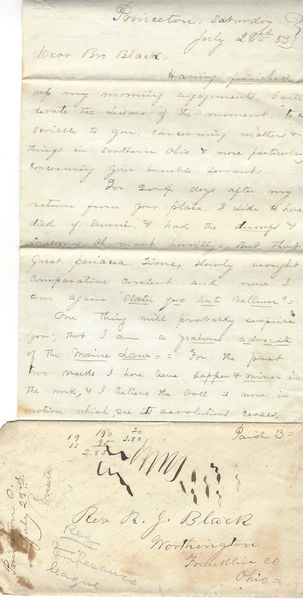 Princeton, Saturday
July 28th 53
Dear Bro Black.
Having finished
up my morning engagements, I will
devote the leisure of the moment, to a
scribble to you, concerning matters &
things in southern Ohio, & more particularly
concerning your humble servant.
For days after my
return from your place, I liked to have
died of ennui, & had the dumps &
most horribly - But that
great panacea, Time, slowly wrought
comparative content and now I
am again "Statu quo ante bellum" -
One thing will probably surprise
you; that I am a zealous advocate
of the Maine Law - For the past
two weeks I have been sapper & miner in
the work, & I believe the ball is now in
motion which its revolutions ceases,
19 190 20
11 95 3.80
2.80
Paid 3
Princeton O.
July 28th
Rev. R. J. Black
Worthington
Franklin Co
Ohio
Temperance
league